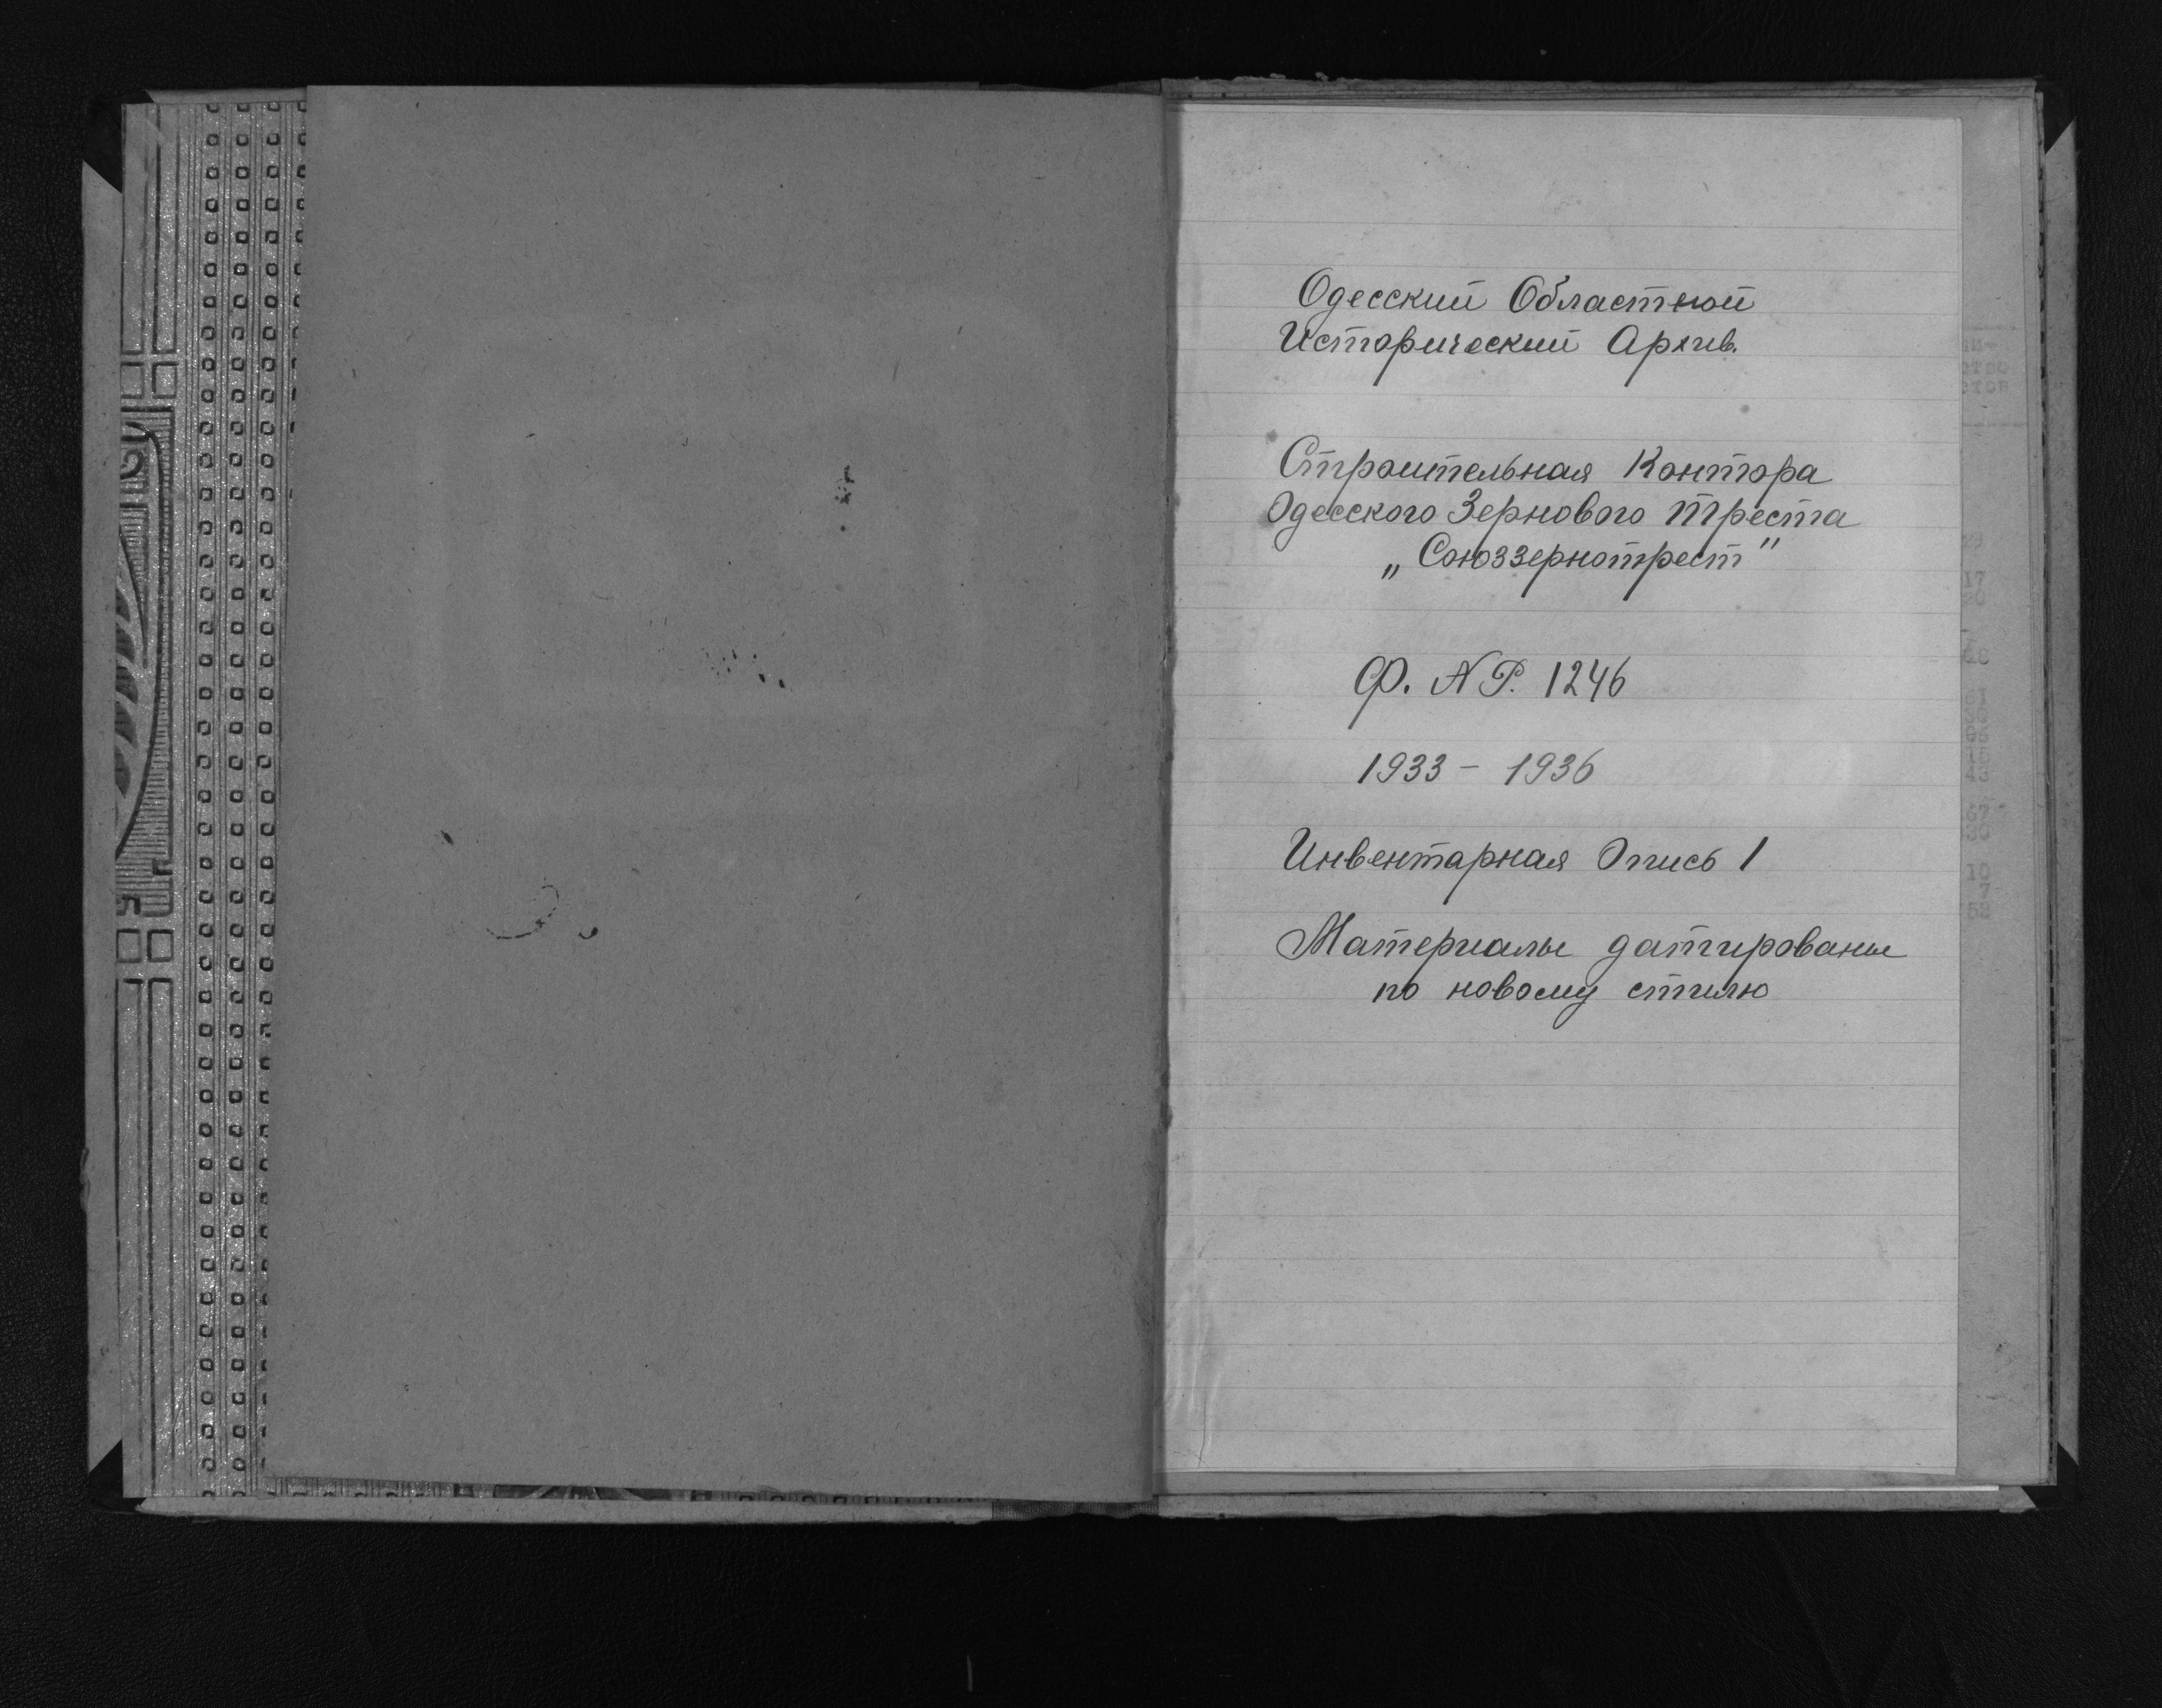 Одесский Областной
Исторический Архив.
Строительная Контора
Одесского Зернового Треста
„Союззернотрест"
Ф. № Р. 1246
1933 - 1936
Инвентарная Опись 1
Материалы датированы
по новому стилю
17
10
7
58